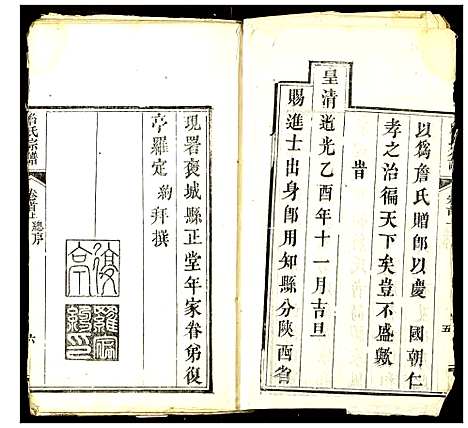 以為詹氏贈郎以慶國朝仁
孝之治徧天下矣豈不盛歟
旹
皇清道光乙酉年十一月吉旦
賜進士出身即用知縣分陝西省
五
現署褒城縣正堂年家眷弟復
亭羅定約拜撰
復亭
羅定約印
氏宗譜
卷首上
總序
六